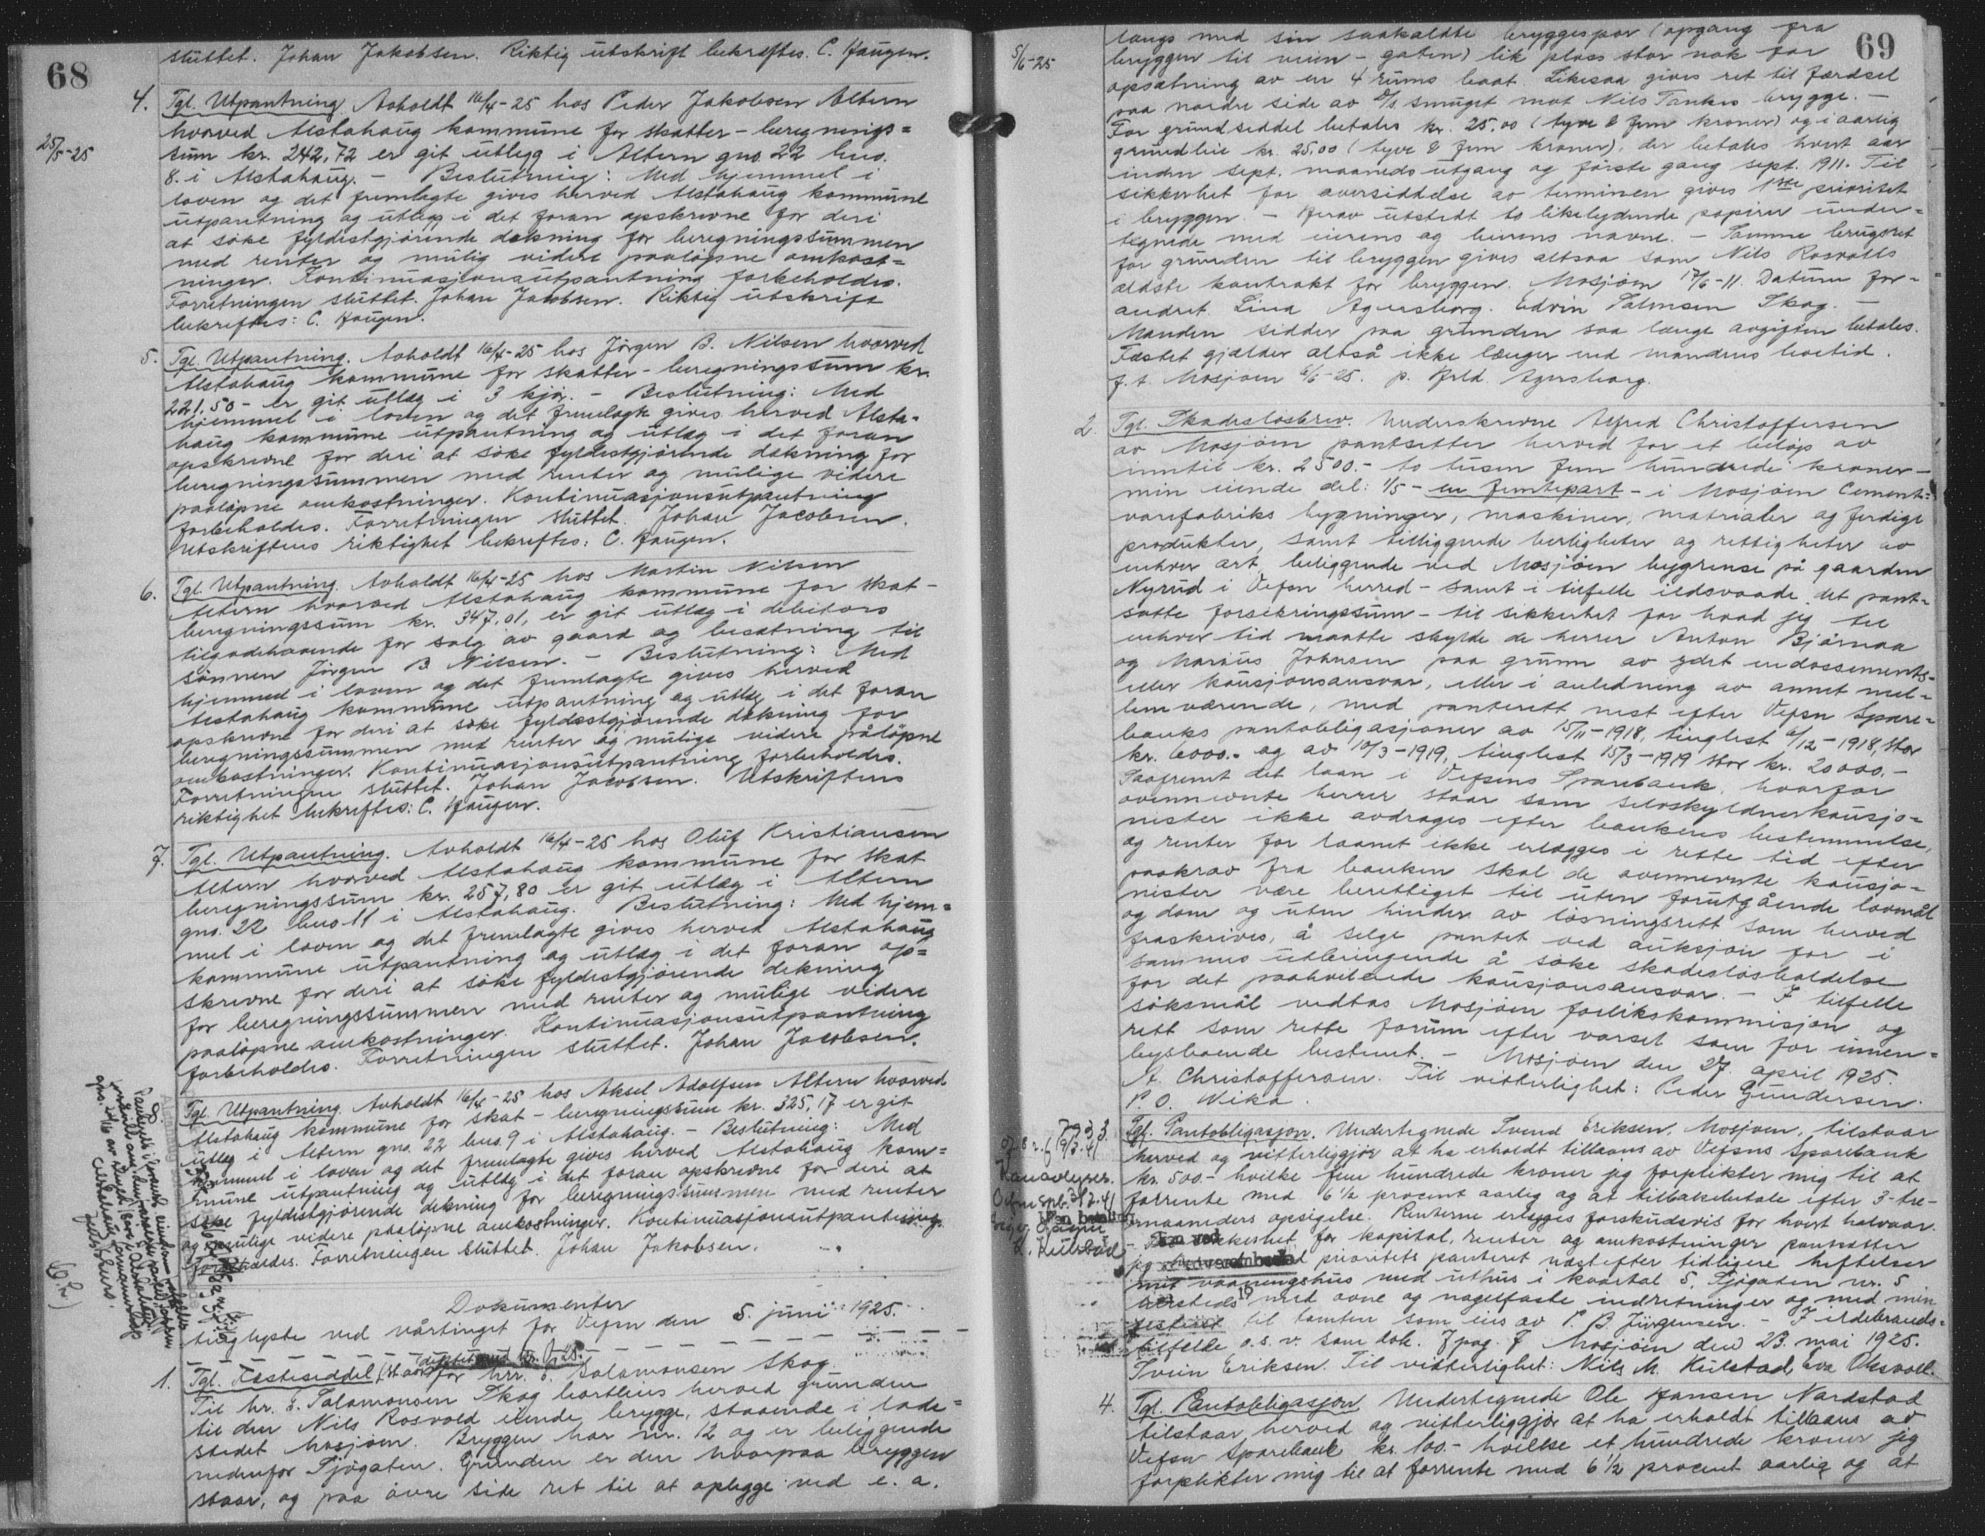 68
sluttet. Johan Jakobsen. Riktig utskrift bekreftes. C. Haugen.
4. Tgl. Utpantning Avholdt 16/4-25 hos Peder Jakobsen Altern
25/5-25
hvorved Alstahaug kommune for skatter - beregnings=
sum kr. 242,72 er git utlegg i Altern gno. 22 bno.
8. i Alstahaug. - Beslutning: Med hjemmel i
loven og det fremlagte gives herved Alstahaug kommune
utpantning og utlegg i det foran opskrevne for deri
at söke fyldestgjörende dekning for beregningssummen
med renter og mulig videre paalöpne omkost=
ninger. Kontinuasjonsutpantning forbeholdes.
Forretningen sluttet. Johan Jakobsen. Riktig utskrift
bekreftes: C. Haugen.
5. Tgl. Utpantning. Avholdt 16/4-25 hos Jörgen B. Nilsen hvorved
Alstahaug kommune for skatter - beregningssum kr.
221,50 - er git utlæg i 3 kjör. - Beslutning: Med
hjemmel i loven og det fremlagte gives herved Alsta-
haug kommune utpantning og utlæg i det foran
opskrevne for deri at söke fyldestgjörende dekning for
beregningssummen med renter og mulige videre
paalöpne omkostninger. Kontinuasjonsutpantning
forbeholdes. Forretningen sluttet. Johan Jacobsen.
Utskriftens riktighet bekreftes: C. Haugen.
6. Tgl. Utpantning. Avholdt 16/4-25 hos Martin Nilsen
Altern hvorved Alstahaug kommune for skat-
beregningssum kr. 347,01, er git utlæg i debitors
tilgodehavende for salg av gaard og besætning til
sönnen Jörgen B Nilsen. - Beslutning: Med
hjemmel i loven og det fremlagte gives herved
Alstahaug kommune utpantning og utlæg i det foran
opskrevne for deri at söke fyldestgjörende dekning for
beregningssummen med renter og mulige videre pålöpne
omkostninger. Kontinuasjonsutpantning forbeholdes.
Forretningen sluttet. Johan Jacobsen. Utskriftens
riktighet bekreftes: C. Haugen.
7. Tgl. Utpantning. Avholdt 16/4-25 hos Oluf Kristiansen
Altern hvorved Alstahaug kommune for skat
beregningssum kr. 257,80 er git utlæg i Altern
gno. 22 bno 11 i Alstahaug. Beslutning: Med hjem=
mel i loven og det fremlagte gives herved Alstahaug
kommune utpantning og utlæg i det foran op=
skrevne for deri at söke fyldestgjörende dekning
for beregningssummen med renter og mulige videre
paalöpne omkostninger. Kontinuasjonsutpantning
forbeholdes. Forretningen sluttet. Johan Jacobsen.
Tgl. Utpantning. Avholdt 16/4-25 hos Aksel Adolfsen Altern hvorved
Alstahaug kommune for skat - beregningssum kr. 325,17 er git
utlæg i Altern gno. 22 bno. 9 i Alstahaug. - Beslutning: Med
hjemmel i loven og det fremlagte gives herved Alstahaug kom=
mune utpantning og utlæg i det foran opskrevne for deri at
söke fyldestgjörende dekning for beregningssummen med renter
og mulige videre paalöpne omkostninger. Kontinuasjonsutpantning
forbeholdes. Forretningen sluttet. Johan Jakobsen.
Dokumenter
tinglyste ved vårtinget for Vefsn den 5. juni 1925.
1. Tgl. Festeseddel for hrr. E. Salamonsen Skog.
Til hr. E. Salamonsen Skog bortleies herved grunden
til den Nils Rosvold eiende brygge, staaende i lade=
stedet Mosjöen. Bryggen har nr. 12 og er beliggende
nedenfor Sjögaten. Grunden er den hvorpaa bryggen
staar, og paa övre side ret til at oplegge ved e. a.
69
5/6-25
langs med sin saakaldte bryggespor (opgang fra
bryggen til veien - gaten) lik plass stor nok for
opsætning av en 4 rums baat. Likesaa gives ret til færdsel
paa nordre side av smuget mot Nils Tankes brygge. -
For grundseddel betales kr. 25,00 (tyve & fem kroner) og i aarlig
grundleie kr. 25,00 (tyve & fem kroner), der betales hvert aar
inden sept. maaneds utgang og förste gang sept. 1911. Til
sikkerhet for aversiddelse av terminen gives 1ste prioritet
i bryggen. - Herav utstedt to likelydende papirer under=
tegnede med eierens og leierens navne. - Samme brugsret
for grunden til bryggen gives altsaa som Nils Rosvolls
ældste kontrakt for bryggen. Mosjöen 17/6-11. Datum for=
andret. Lina Agersborg. Edvin Salmsen Skog. -
Manden sidder paa grunden saa længe avgiften betales.
Fæstet gjælder altså ikke længer end mandens levetid.
f. t. Mosjöen 5/6-25. p. Hrld. Agersborg.
2. Tgl. Skadeslösbrev. Underskrevne Alfred Christoffersen
av Mosjöen pantsetter herved for et belöp av
inntil kr. 2500.- to tusen fem hundrede kroner -
min eiende del: 1/5 - en femtepart - i Mosjöen Cement=
varefabriks bygninger, maskiner, materialer og ferdige
produkter, samt tilliggende herligheter og rettigheter av
enhver art, beliggende ved Mosjöen bygrense på gaarden
Nyrud i Vefsn herred - samt i tilfelle ildsvaade det pant=
satte forsikringssum - til sikkerhet for hvad jeg til
enhver tid maatte skylde de herrer Anton Björnaa
og Marius Johnsen paa grunn av ydet endossements-
eller kausjonsansvar, eller i anledning av annet mel=
lemværende, med panterett nest efter Vefsn Spare=
banks pantobligasjoner av 15/11-1918, tinglest 6/12-1918, stor
kr. 6000.- og av 10/3-1919, tinglest 15/3-1919 stor kr. 20000.-
Saafremt det laan i Vefsens Sparebank, hvorfor
ovennevnte herrer staar som selvskyldnerkausjo=
nister ikke avdrages efter bankens bestemmelse,
og renter for laanet ikke erlægges i rette tid efter
paakrav fra banken skal de ovennevnte kausjo=
nister være berettiget til uten forutgående lovmål
og dom og uten hinder av lösningsrett som herved
fraskrives, å selge pantet ved auksjon for i
sammes utbringende å söke skadeslösholdelse
for det paahvilende kausjonsansvar. - I tilfelle
söksmål vedtas Mosjöen forlikskommisjon og
rett som rette forum efter varsel som for innen=
bysboende bestemt. - Mosjöen den 27. april 1925.
A. Christoffersen. Til vitterlighet: Peder Gundersen.
P. O. Wika.
Tgl. Pantobligasjon. Undertegnede Svend Eriksen, Mosjöen, tilstaar
herved og vitterliggjör at ha erholdt tillaans av Vefsns Sparebank
kr. 500.- hvilke fem hundrede kroner jeg forplikter mig til at
forrente med 6 1/2 procent aarlig og at tilbakebetale efter 3-tre-
maaneders opsigelse. Renterne erlegges forskudsvis for hvert halvaar.
- sikkerhet for kapital, renter og omkostninger pantsetter
jeg med prioritets panteret næstefter tidligere heftelser
mit vaaningshus med uthus i kvartal 5, Sjögaten nr. 5
hersteds med ovne og nagelfaste indretninger og med min
til tomten som eies av P. B. Jürgensen. - I ildebrands=
tilfelle o.s.v. som dok. 7 pag. 7 Mosjöen den 23. mai 1925.
Svein Eriksen. Til vitterlighet: Nils M. Kulstad, Eva Olsvoll.
4. Tgl. Pantobligasjon Undertegnede Ole Hansen Nardstad
tilstaar herved og vitterliggjör at ha erholdt tillaans av
Vefsn Sparebank kr. 100.- hvilke et hundrede kroner jeg
forplikter mig til at forrente med 6 1/2 procent aarlig og at